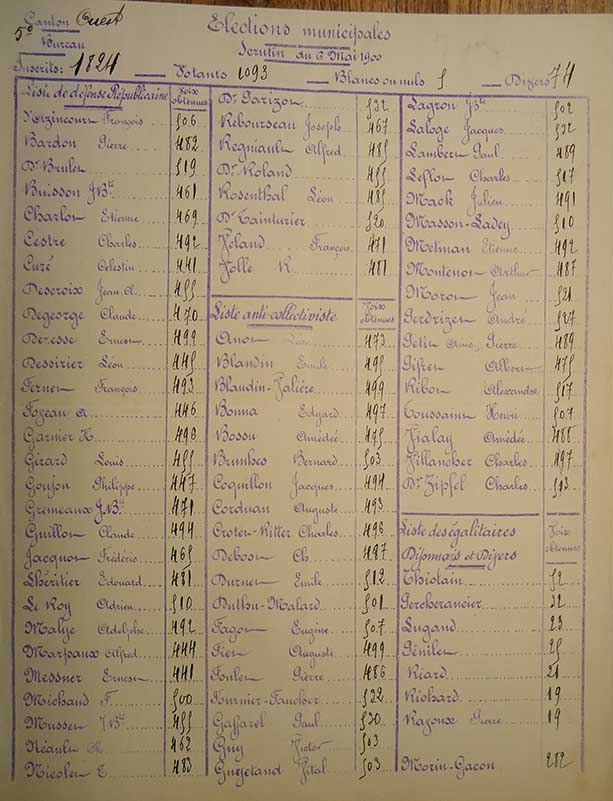 Canton Ouest
5e Bureau
Elections municipales
Scrutin du 6 Mai 1900
Inscrits: 1824 Votants 1093 Blancs ou nuls 5 Divers 74
Liste de défense Républicaine Voix obtenues
d'Azincourt François 506
Bardon Pierre 482
Dr Brulet 519
Buisson J.Bte 461
Charlot Etienne 469
Cestre Charles 492
Curé Celestin 441
Descroix Jean Cl. 455
Degeorge Claude 470
Deresse Ernest 499
Dessirier Léon 445
Ferner François 493
Fozeau A. 446
Garnier H. 498
Girard Louis 455
Goujon Philippe 447
Gremeaux J.Bte 471
Guillon Claude 494
Jacquot Frédéric 465
Lhéritier Edouard 481
Le Roy Adrien 510
Malye Adolphe 492
Marpaux Alfred 444
Messner Ernest 441
Michaud F. 500
Musset J.Bte 455
Réault 462
Nicolet E. 483
Dr Parizot 532
Rebourseau Joseph 467
Regniault Alfred 485
Dr Roland 455
Rosenthal Léon 485
Dr Tainturier 520
Veland François 471
Volle R. 481
Liste anti-collectiviste Voix obtenues
473
Blandin Emile 495
Blaudin-Valière 499
Bonna Edgard 497
Bossu Amédée 475
Brunhes Bernard 503
Coquillon Jacques 494
Cordnan Auguste 493
Crotet-Ritter Charles 498
Debost Ch. 487
Durnet Emile 512
Duthu-Malard 501
Fagot Eugène 507
Auguste 499
Foulet Pierre 486
Fournier-Faucher 522
Gaffarel Paul 530
Guy Victor 503
Gueyetand Vital 503
Lagron J.Bte 502
Laloge Jacques 532
Lambert Paul 489
Leflot Charles 517
Mack Julien 491
Masson-Ladey 510
Metman Etienne 492
Montenot Arthur 487
Morot Jean 521
Perdrizet André 527
Petit Aimé Pierre 489
Albert 475
Ribot Alexandre 517
Toussaint Henri 507
Vialay Amédée 488
Villancher Charles 497
Dr Zipfel Charles 513
Liste des égalitaires Dijonnais et Divers Voix obtenues
Thiotain 52
Percherancier 22
Lugand 23
Génilet 25
Riard 21
Richard 19
Razoux Pierre 19
Morin-Gacon 282